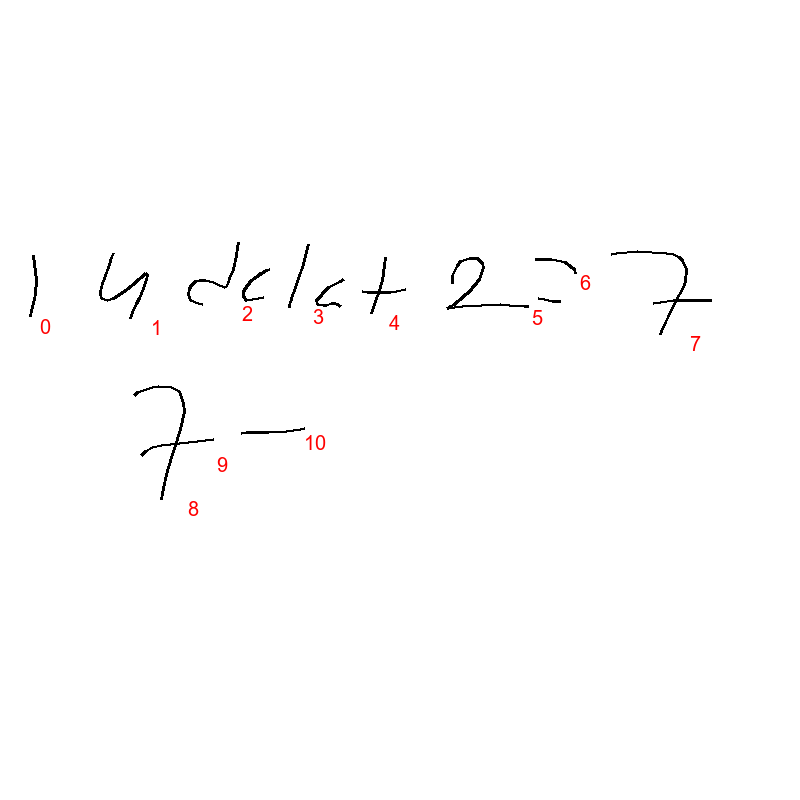 14 delet 2 = 7
0 1 2 3 4 5 6 7
7 -
8 9 10